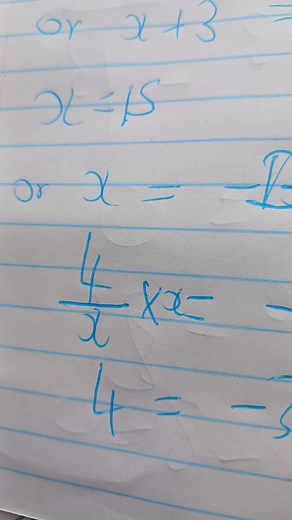 or x + 3 =
x = 15
or x = -
4/x × x = -
4 = -